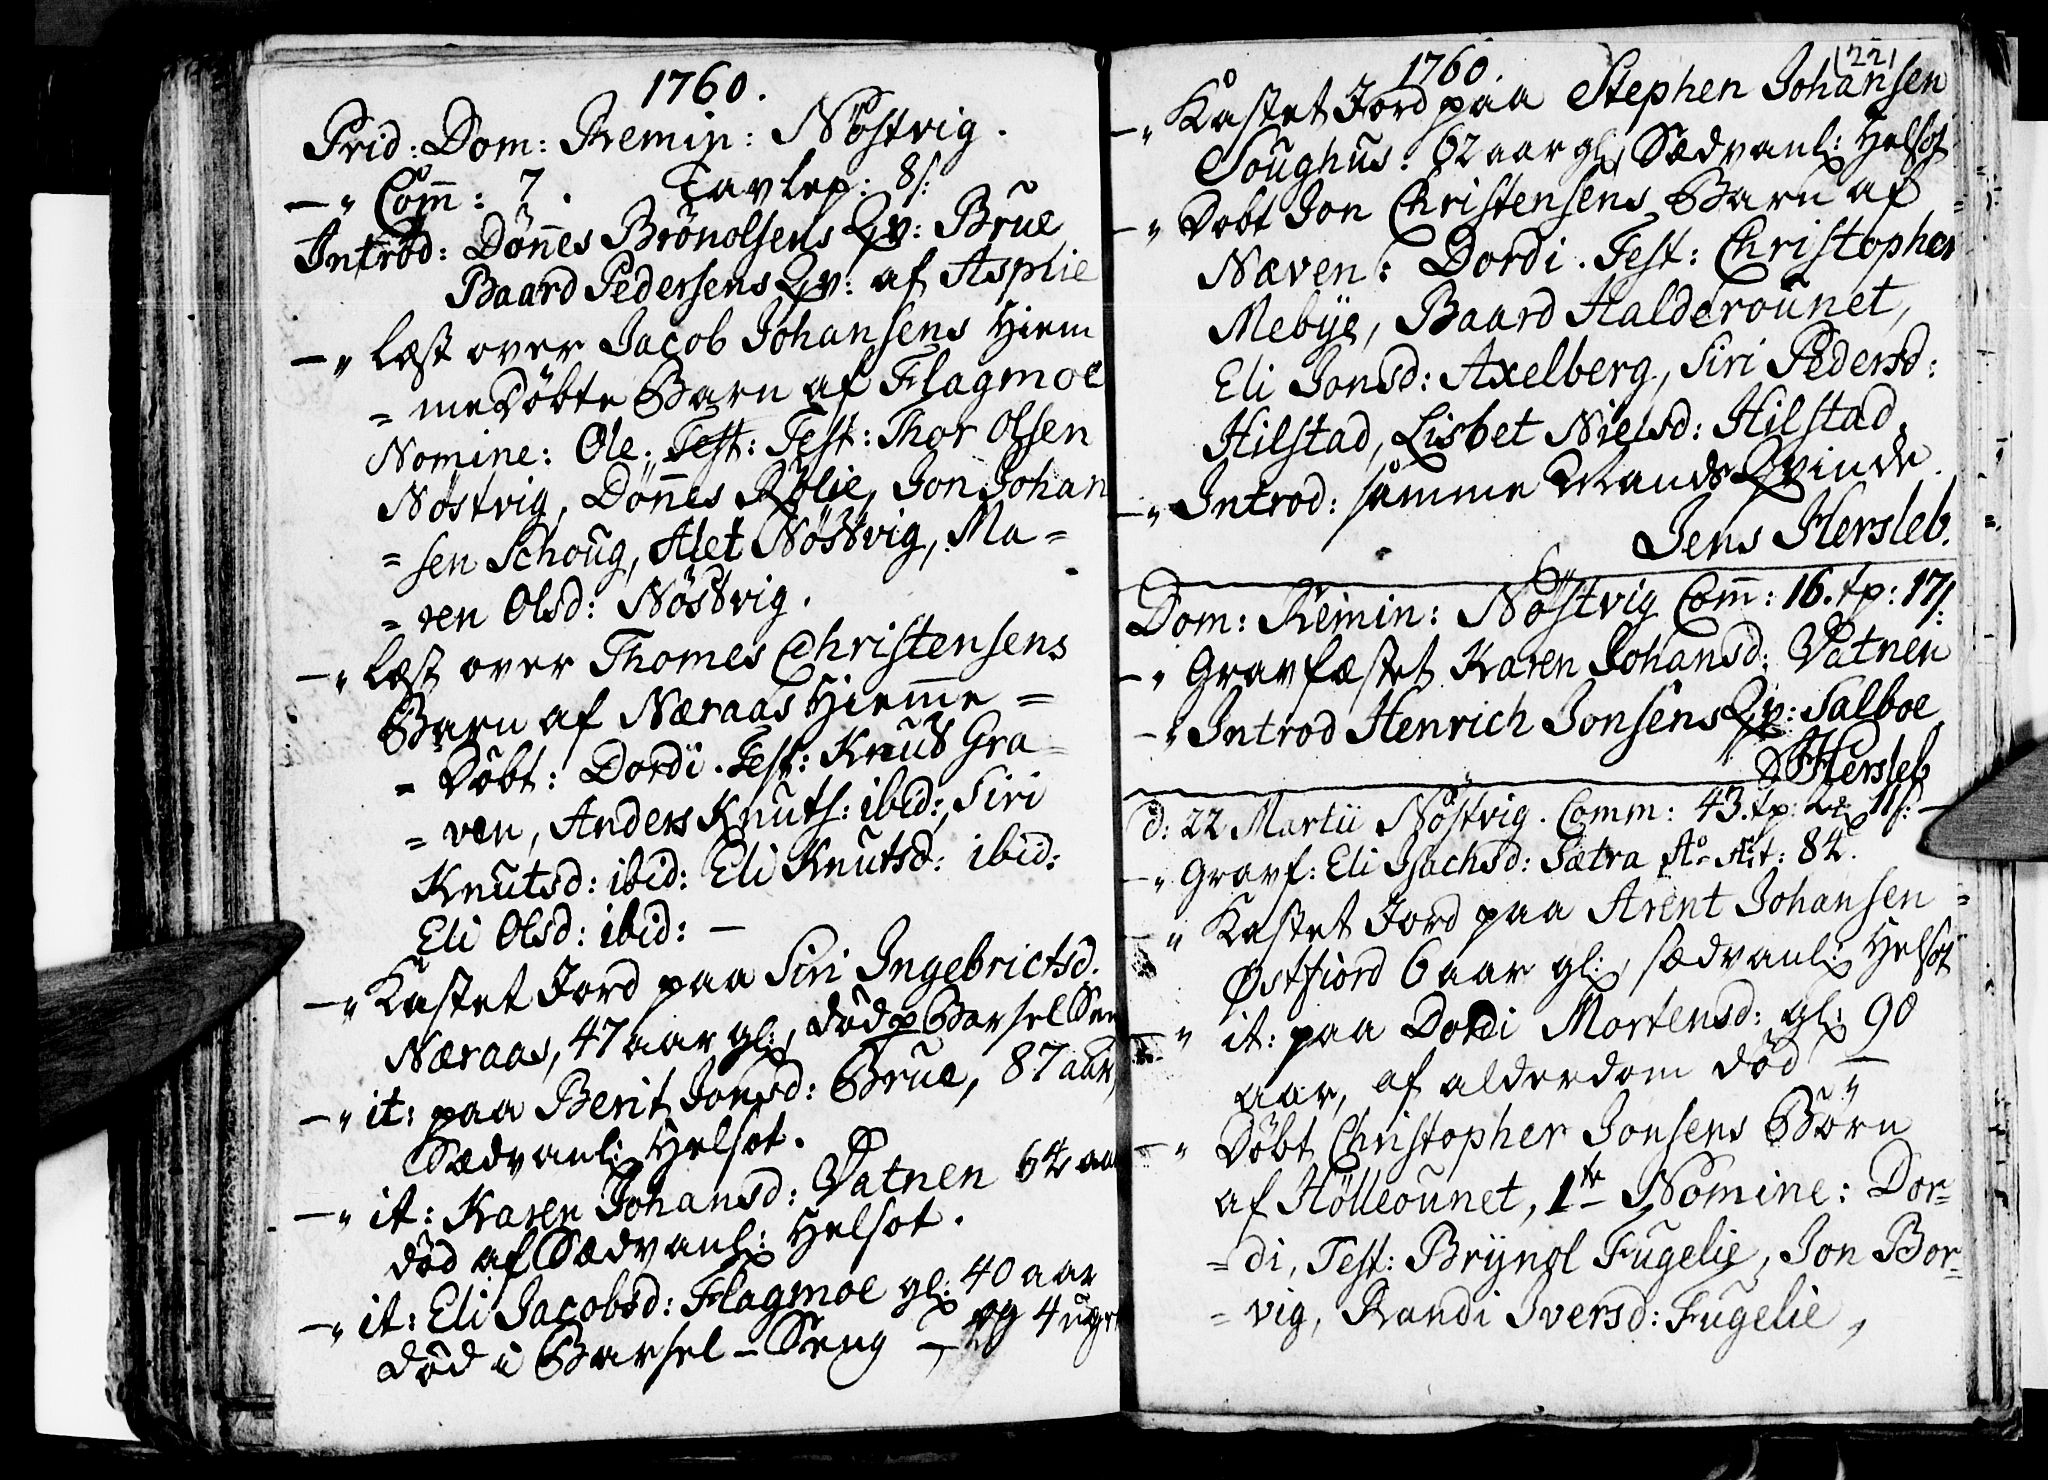 1760.
Prid: Dom: Remin: Nöstvig.
—„ Com̄: 7. Tavlep: 8/:
Introd: Dön̄es Brönolsens Qv: Brue
Baard Pedersens Qv: af Asplie
—„ læst over Jacob Johansens Hiem
= medöbte Barn af Flagmoe
Nomine: Ole. Test: Test: Thor Olsen
Nöstvig, Dön̄es Rölie, Jon Johan
= sen Schoug, Alet Nöstvig, Ma=
= ren Olsd: Nöstvig.
—„ læst over Thomes Christensens
Barn af Næraas Hiem̄e =
= döbt: Dordi. Test: Knut Gra=
= ven, Anders Knuts: ibid:, Siri
Knutsd: ibid: Eli Knutsd: ibid:
Eli Olsd: ibid: —
—„ Kastet Jord paa Siri Ingebrictsd.
Næraas, 47 aar gl:, död p Barsel Sen
—„ it: paa Berit Jonsd: Brue, 87 aar,
Sædvanl: Helsot.
—„ it: Karen Johansd: Vatnen 64 aa
död af Sædvanl: Helsot.
—„ it: Eli Jacobsd: Flagmoe gl: 40 aar
död i Barsel-Seng — og 4 uger
1760. (22)
—„ Kastet Jord paa Stephen Johansen
Soughus: 62 aar gl, Sædvanl: Helsot
—„ Dobt Jon Christensens Barn af
Næven: Dordi. Test: Christopher
Mebye, Baard Halderounet,
Eli Jonsd: Axelberg, Siri Pedersd:
Hilstad, Lisbet Nielsd: Hilstad.
—„ Introd: samme Mands Qvinde.
Jens Hersleb.
Dom: Remin: Nöstvig Com̄: 16. tp: 17/:
—„ Gravfæstet Karen Johansd: Vatnen
—„ Introd Henrich Jonsens Qv: Salboe
Hersleb
d: 22 Martii Nöstvig. Comm: 43. tp: 11/: —
—„ Gravf: Eli Isachsd: Sætra Ao Æt: 82.
—„ Kastet Jord paa Arent Johansen
Østfiord 6 aar gl:, sædvanl: Helsot
—„ it: paa Dordi Mortensd: gl: 90
aar, af alderdom död —
—„ Döbt Christopher Jonsens Börn
af Hölleounet, 1te Nomine: Dor=
= di, Test: Brynol Fugelie, Jon Bor=
= vig, Randi Iversd: Fugelie,